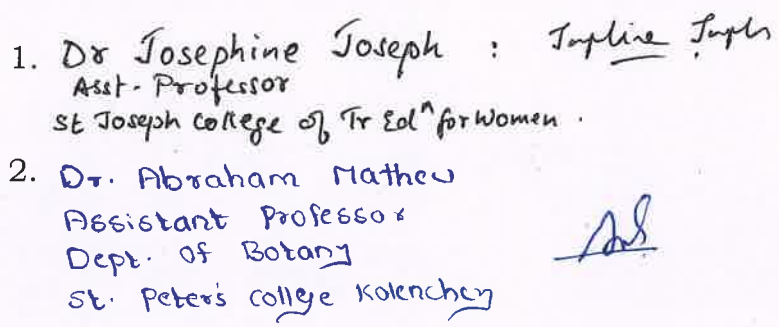 1. Dr Josephine Joseph :
Asst. Professor
St Joseph college of Tr Edⁿ for Women.
2. Dr. Abraham Mathew
Assistant Professor
Dept. of Botany
St. Peter's college Kolenchery